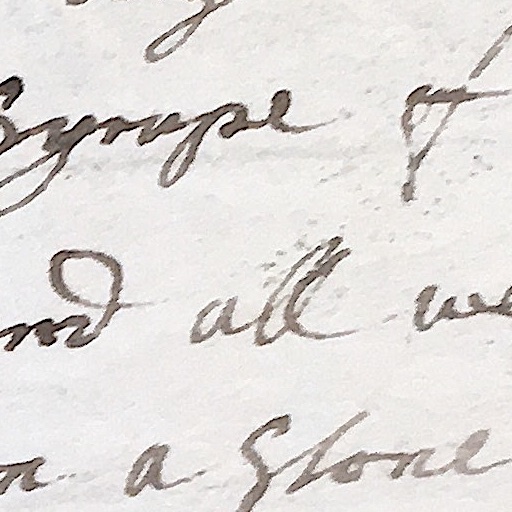 Syrupe of
and all we
a Stone